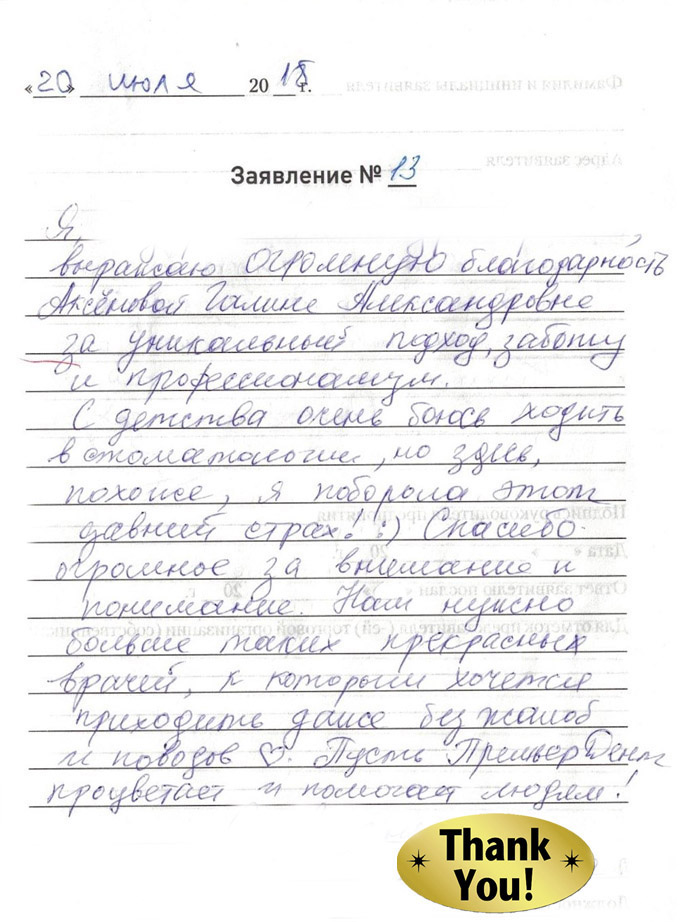 «20» июля 2018г.
Заявление № 13
Я,
выражаю огромную благодарность
Аксёновой Галине Александровне
за уникальный подход, заботу
и профессионализм.
С детства очень боюсь ходить
в стоматологии, но здесь,
похоже, я поборола этот
давний страх. :) Спасибо
огромное за внимание и
понимание. Нам нужно
больше таких прекрасных
врачей, к которым хочется
приходить даже без жалоб
и поводов ♡. Пусть Премьер Дент
процветает и помогает людям!
Thank
You!